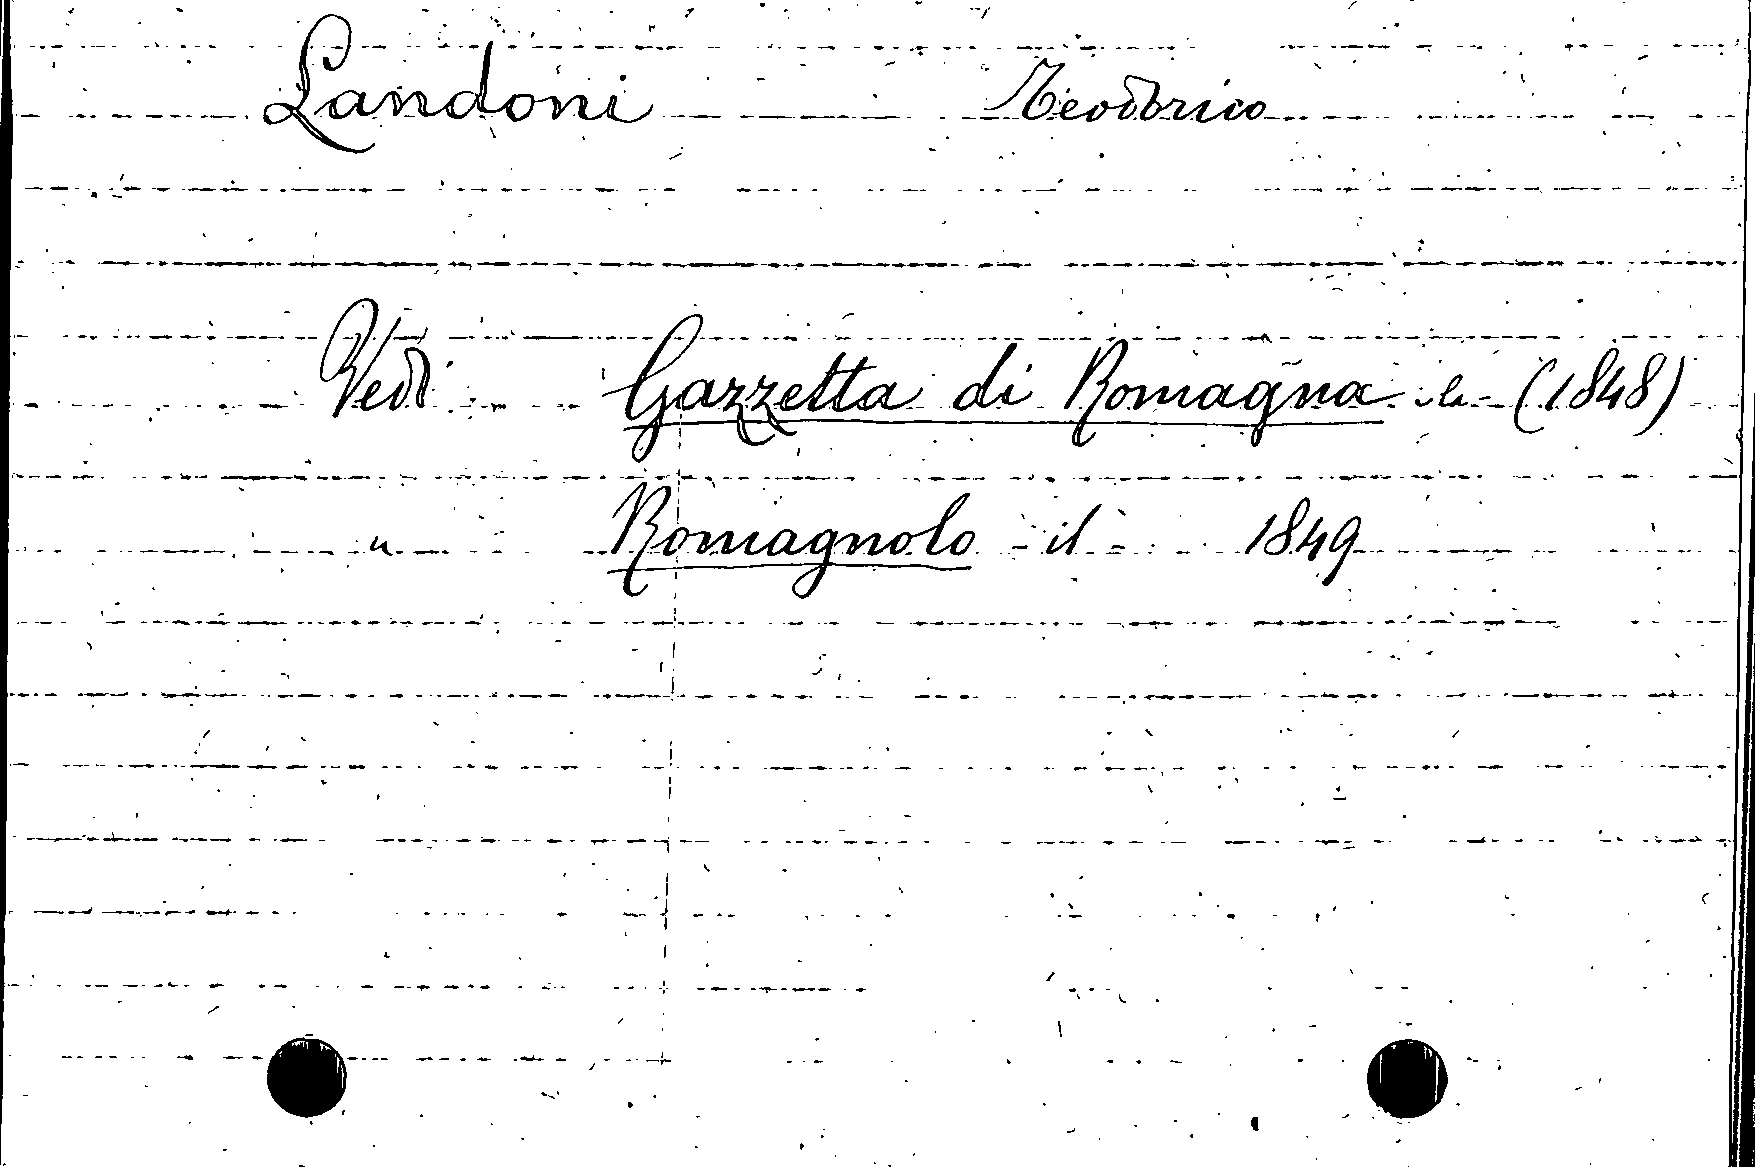 Landoni Teodorico
Vedi Gazzetta di Romagna - la - (1848)
" Romagnolo - il - 1849